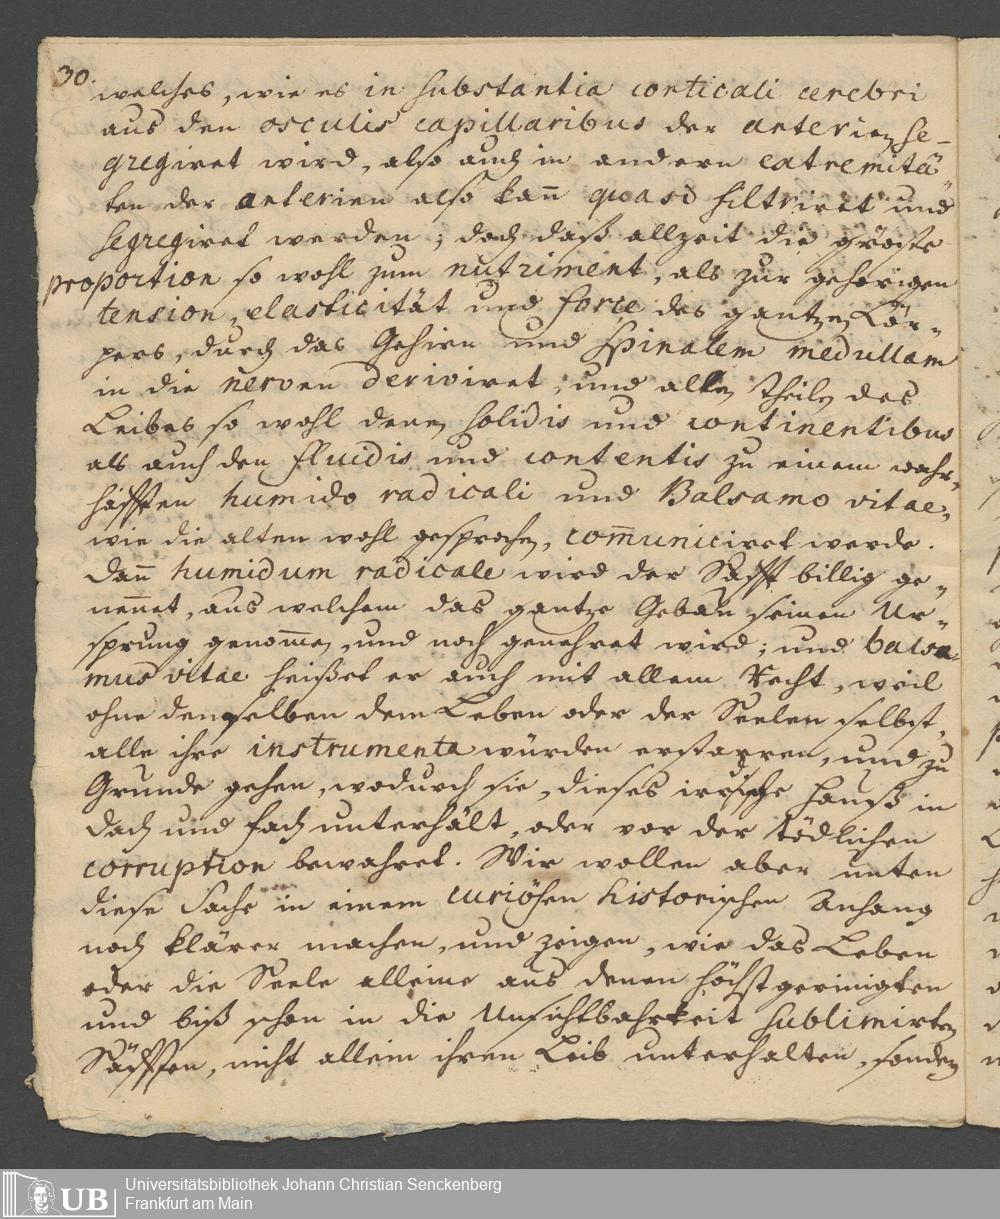 30.
welches, wie es in substantia corticali cerebri
aus den osculis capillaribus der arterien se-
gregiret wird, also auch in andern extremitä-
ten der arterien also kan̄ quasi filtriret und
segregiret werden; doch daß allzeit die gröste
proportion so wohl zum nutriment, als zur gehörigen
tension, elasticität und force des gantzen Cör-
pers, durch das Gehirn und spinalem medullam
in die nerven deriviret, und allen theilen des
Leibes so wohl denen solidis und continentibus
als auch den fluidis und contentis zu einem wahr-
hafften humido radicali und Balsamo vitae,
wie die alten wohl gesprochen, com̄uniciret werde.
Dan̄ humidum radicale wird der Safft billig ge-
nennet, aus welchem das gantze Gebäu seinen Ur-
sprung genom̄en, und noch genehret wird; und balsa-
mus vitae heißet er auch mit allem Recht, weil
ohne denselben dem Leben oder der Seelen selbst,
alle ihre instrumenta würden erstarren, und zu
Grunde gehen, wodurch sie, dieses irdische Hauß in
Dach und Fach unterhält, oder vor der tödlichen
corruption bewahret. Wir wollen aber unten
diese Sache in einem curiösen historischen Anhang
noch klärer machen, und zeigen, wie das Leben
oder die Seele alleine aus denen höchstgereinigten
und biß schon in die Unsichtbahrkeit sublimirten
Säfften, nicht allein ihren Leib unterhalten, sondern
UB
Universitätsbibliothek Johann Christian Senckenberg
Frankfurt am Main